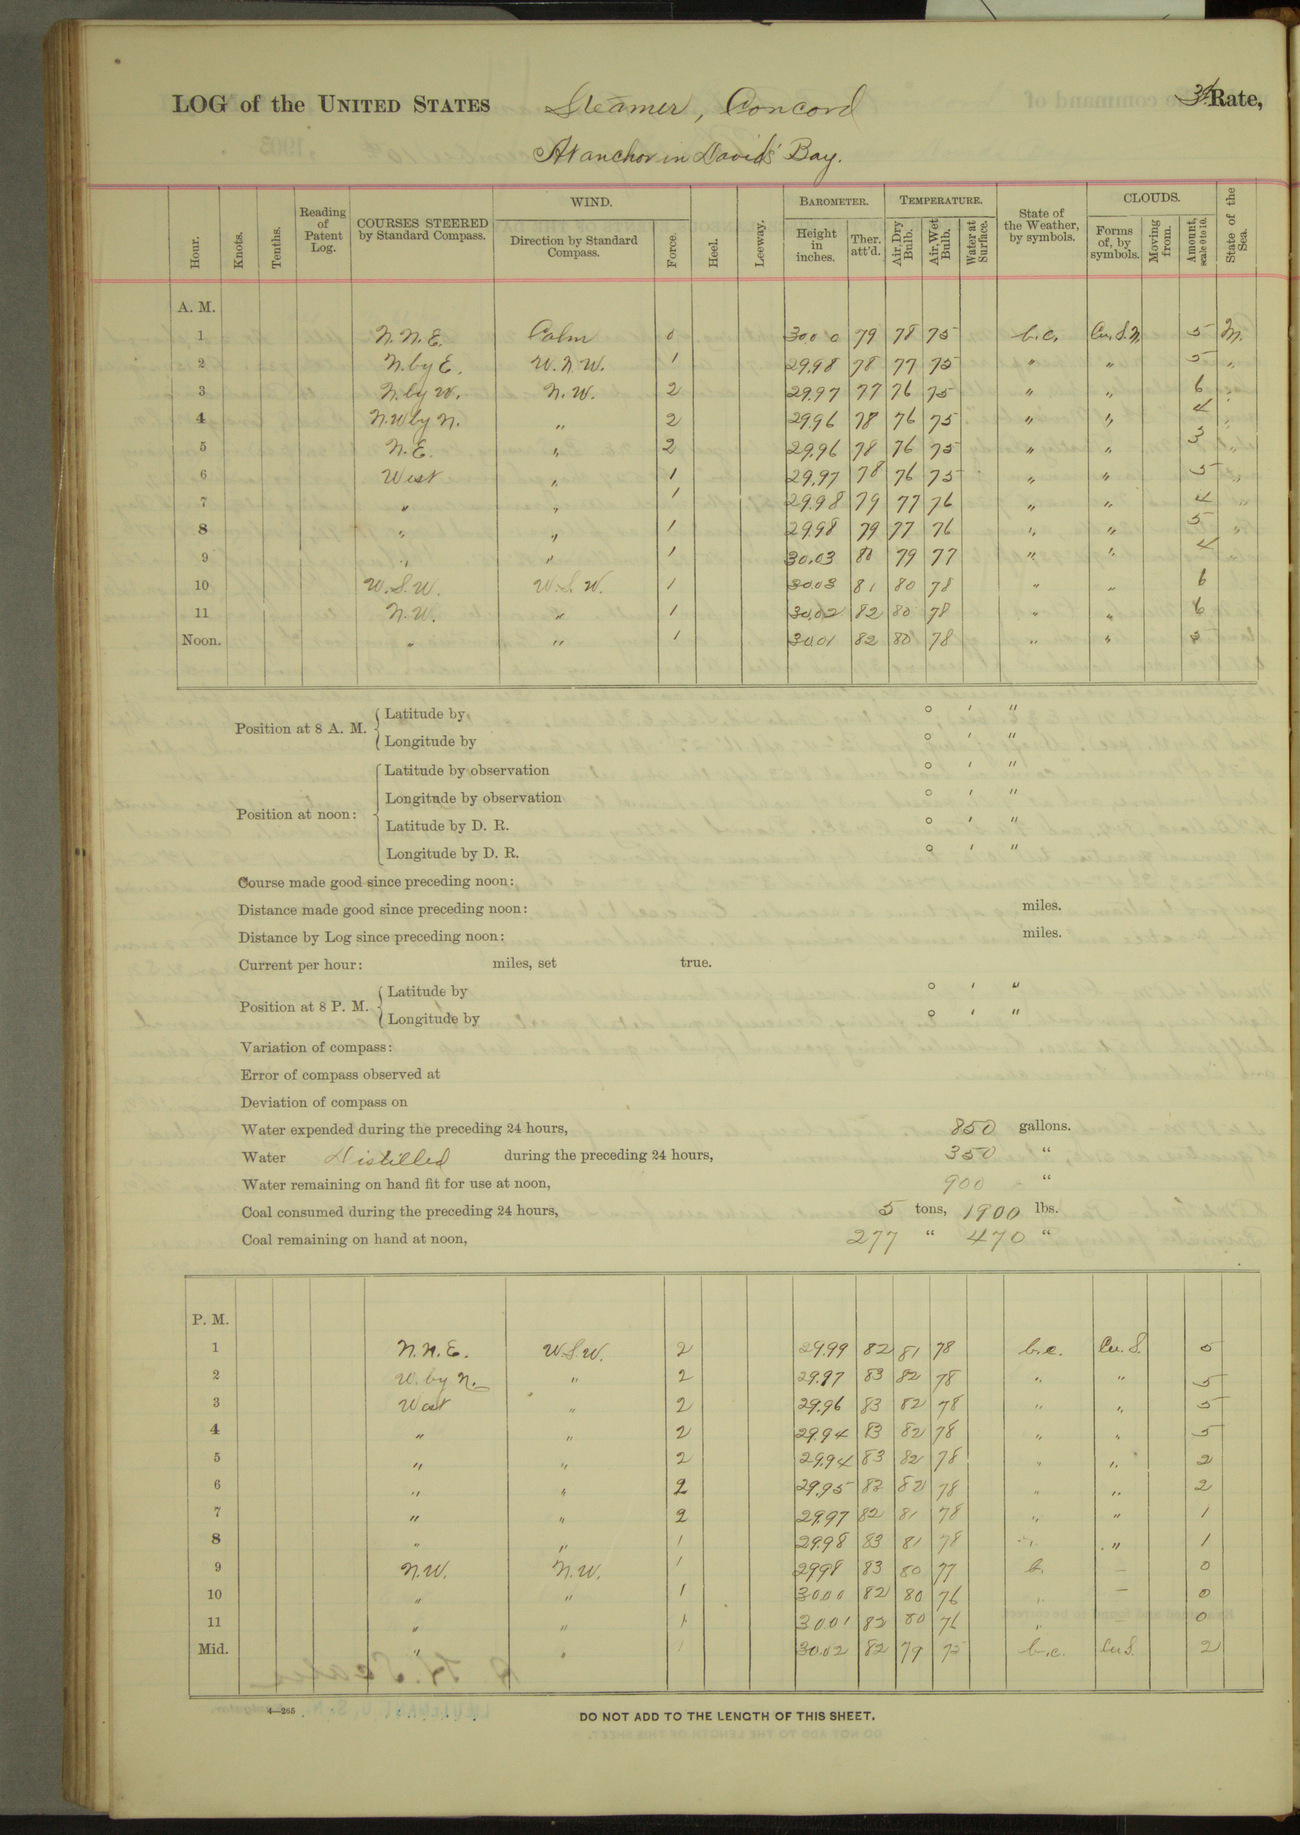 LOG of the UNITED STATES Steamer, Concord 3d Rate,
At anchor in Davids' Bay.
Hour. Knots. Tenths. Reading of Patent Log. COURSES STEERED by Standard Compass. WIND. Direction by Standard Compass. Force. Heel. Leeway. BAROMETER. Height in inches. Ther. att'd. TEMPERATURE. Air, Dry Bulb. Air, Wet Bulb. Water at Surface. State of the Weather, by symbols. CLOUDS. Forms of, by symbols. Moving from. Amount, scale 0 to 10. State of the Sea.
A. M.
1 N.N.E. Calm 0 30.00 79 78 75 b.c. Cu.S.N. 5 M.
2 N. by E. W.N.W. 1 29.98 78 77 75 " " 5 "
3 N. by W. N.W. 2 29.97 77 76 75 " " 6 "
4 N.W by N. " 2 29.96 78 76 75 " " 4 "
5 N.E. " 2 29.96 78 76 75 " " 3 "
6 West " 1 29.97 78 76 75 " " 5 "
7 " " 1 29.98 79 77 76 " " 4 "
8 " " 1 29.98 79 77 76 " " 5 "
9 " " 1 30.03 80 79 77 " " 4 "
10 W.S.W. W.S.W. 1 30.03 81 80 78 " " 6
11 N.W. " 1 30.02 82 80 78 " " 6
Noon. " " 1 30.01 82 80 78 " " 5
Position at 8 A. M. Latitude by ° ' "
Longitude by ° ' "
Position at noon: Latitude by observation ° ' "
Longitude by observation ° ' "
Latitude by D. R. ° ' "
Longitude by D. R. ° ' "
Course made good since preceding noon:
Distance made good since preceding noon: miles.
Distance by Log since preceding noon: miles.
Current per hour: miles, set true.
Position at 8 P. M. Latitude by ° ' "
Longitude by ° ' "
Variation of compass:
Error of compass observed at
Deviation of compass on
Water expended during the preceding 24 hours, 850 gallons.
Water Distilled during the preceding 24 hours, 350 "
Water remaining on hand fit for use at noon, 900 "
Coal consumed during the preceding 24 hours, 5 tons, 1900 lbs.
Coal remaining on hand at noon, 277 " 470 "
P. M.
1 N.N.E. W.S.W. 2 29.99 82 81 78 b.c. Cu.S. 5
2 W. by N. " 2 29.97 83 82 78 " " 5
3 West " 2 29.96 83 82 78 " " 5
4 " " 2 29.94 83 82 78 " " 5
5 " " 2 29.94 83 82 78 " " 2
6 " " 2 29.95 83 82 78 " " 2
7 " " 2 29.97 82 81 78 " " 1
8 " " 1 29.98 83 81 78 " " 1
9 N.W. N.W. 1 29.98 83 80 77 b. — 0
10 " " 1 30.00 82 80 76 " — 0
11 " " 1 30.01 82 80 76 " — 0
Mid. " " 1 30.02 82 79 75 b.c. Cu.S. 2
4—265
DO NOT ADD TO THE LENGTH OF THIS SHEET.